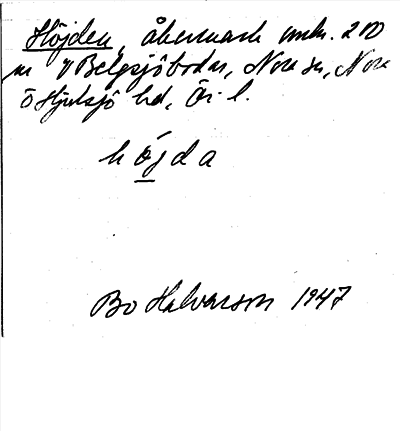 Höjden, åkermark omkr. 200
m V Belgsjöbodar, Nora sn, Nora
o Hjulsjö hd, Ör. l.
höjda
Bo Halvarson 1947